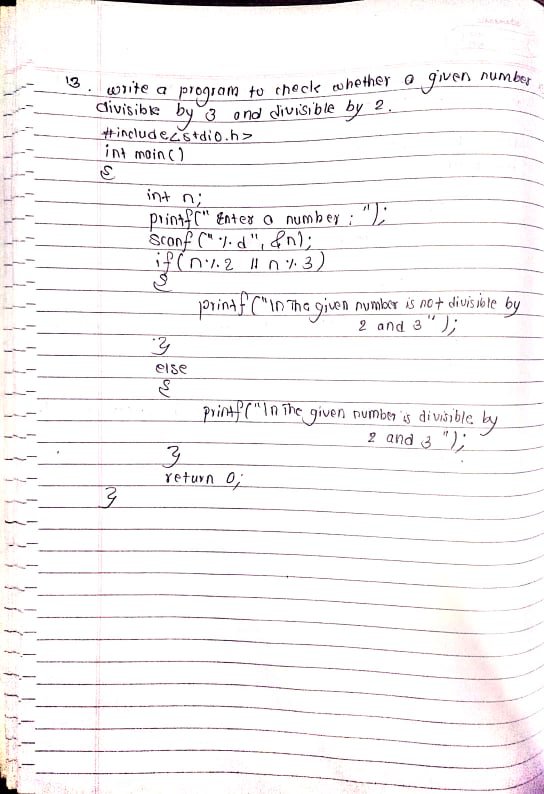 13. write a program to check whether a given number
divisible by 3 and divisible by 2.
#include<stdio.h>
int main()
{
int n;
printf(" Enter a number : ");
scanf ("%d", &n);
if(n%2 || n%3)
{
printf("\n The given number is not divisible by
2 and 3");
}
else
{
printf("\n The given number is divisible by
2 and 3 ");
}
return 0;
}